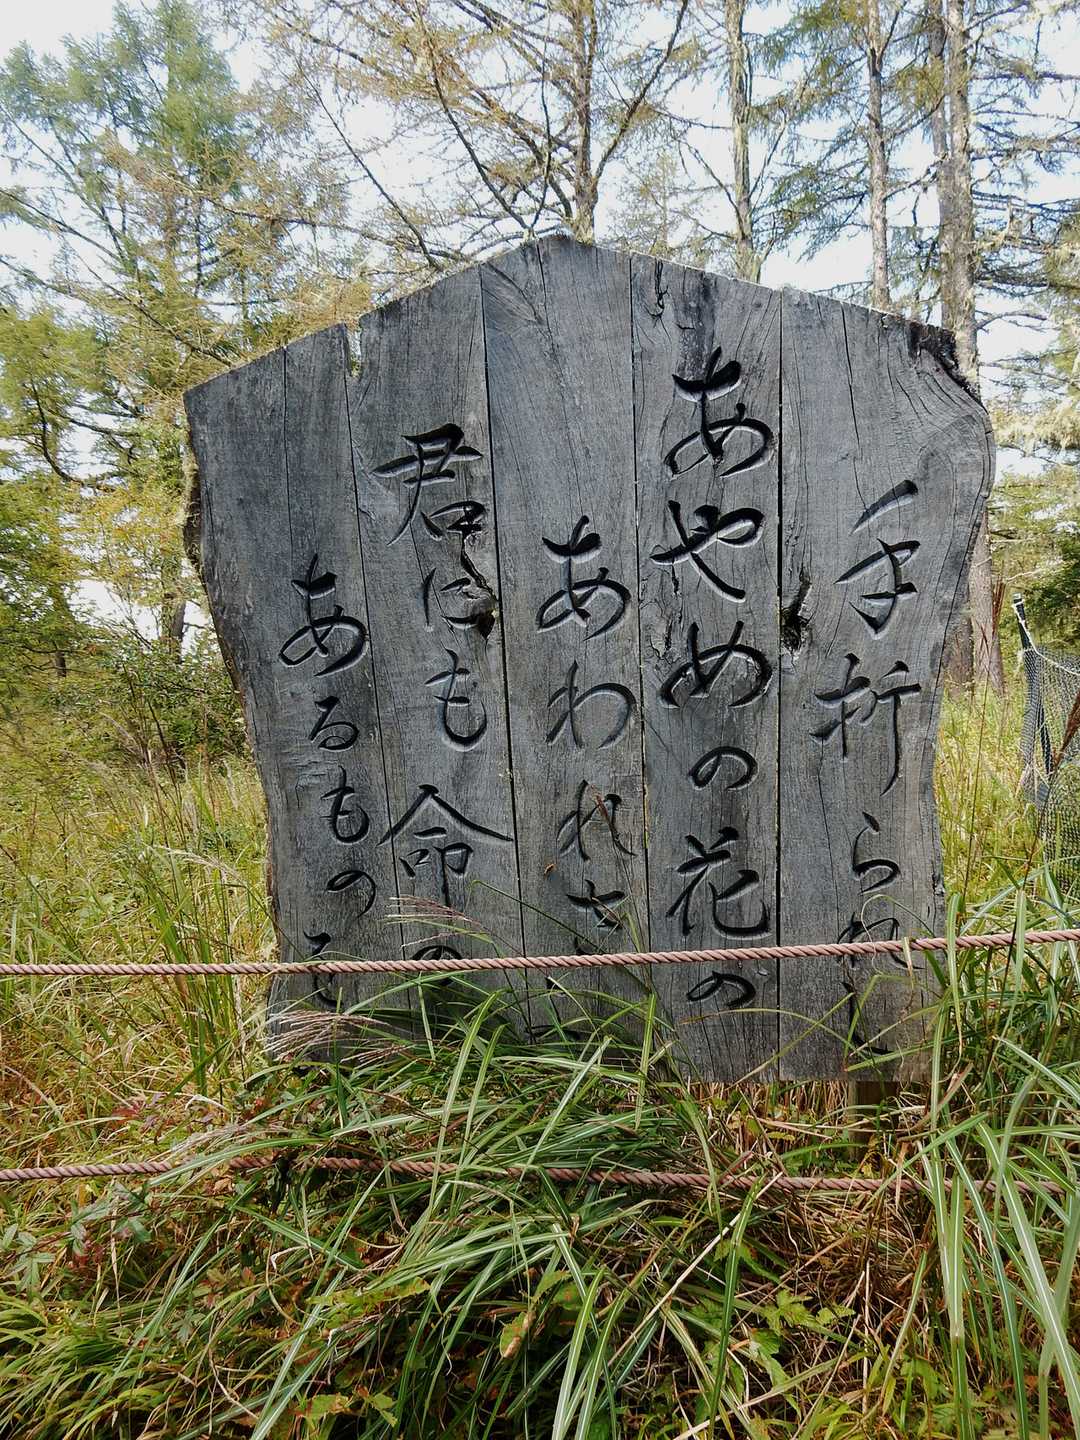 手折られし
あやめの花の
あわれさ
君にも命の
あるものを